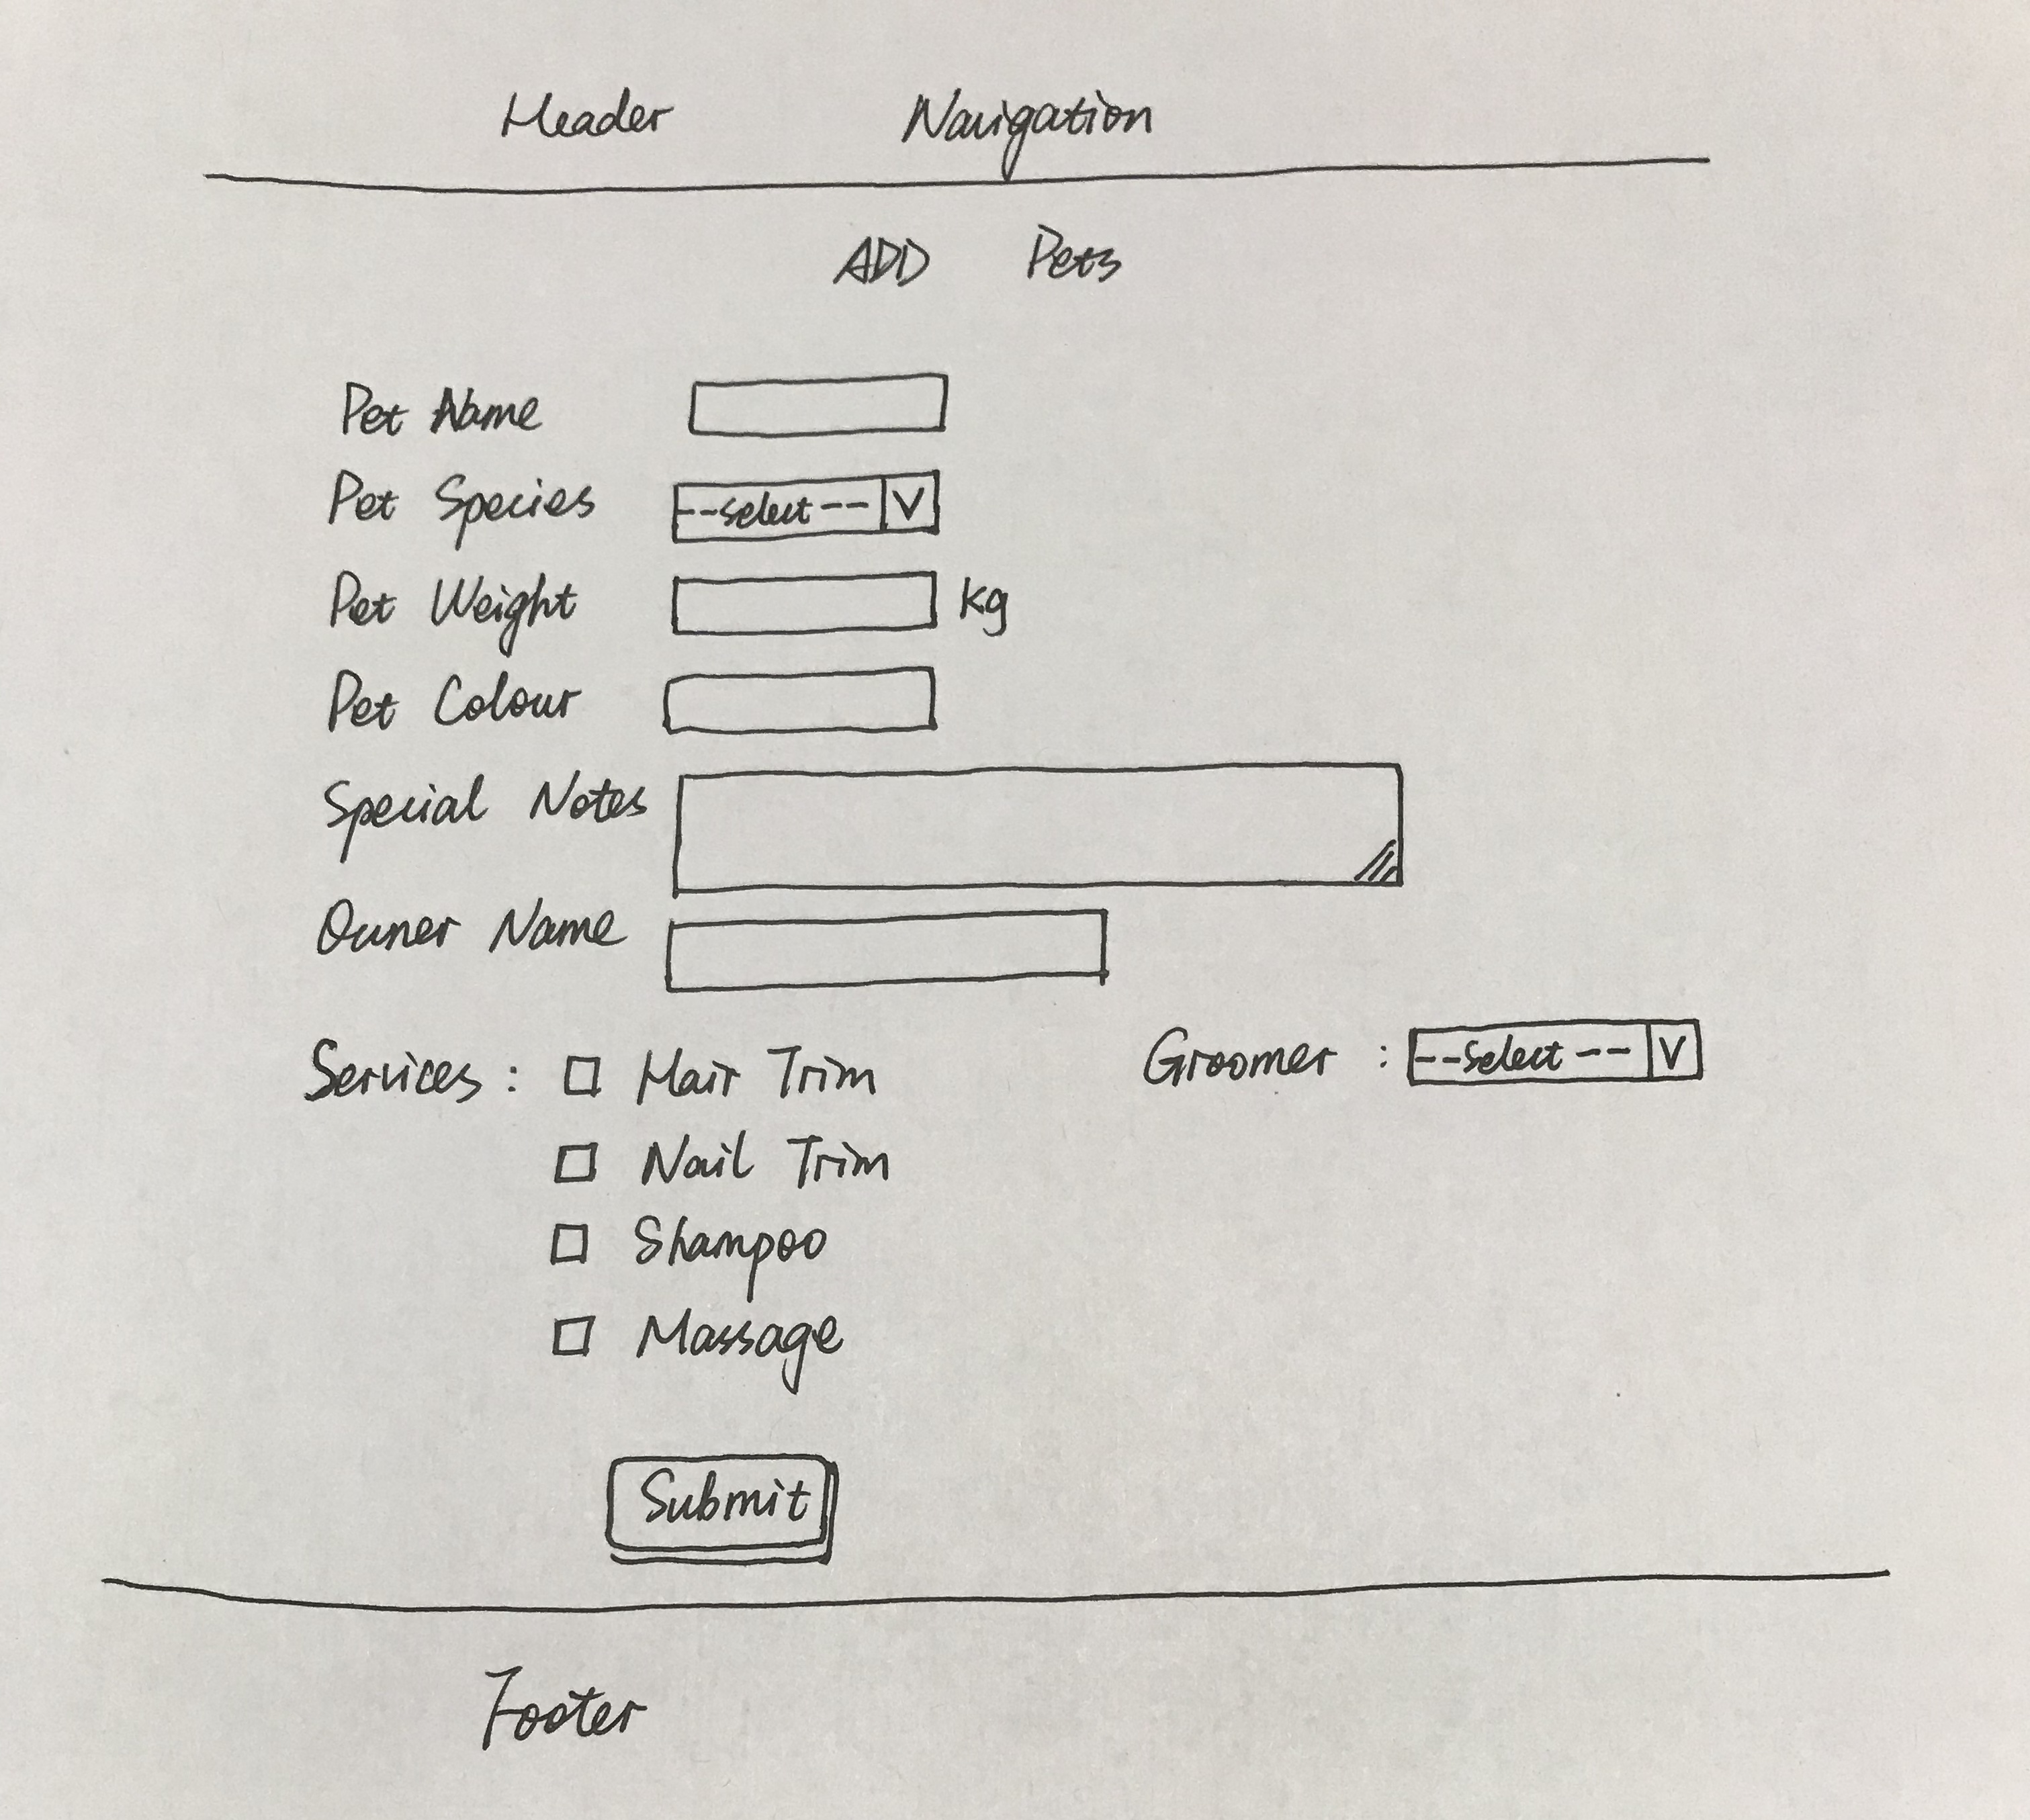 Header Navigation
ADD Pets
Pet Name
Pet Species --select-- V
Pet Weight kg
Pet Colour
Special Notes
Owner Name
Services : Hair Trim Groomer : --select-- V
Nail Trim
Shampoo
Massage
Submit
Footer